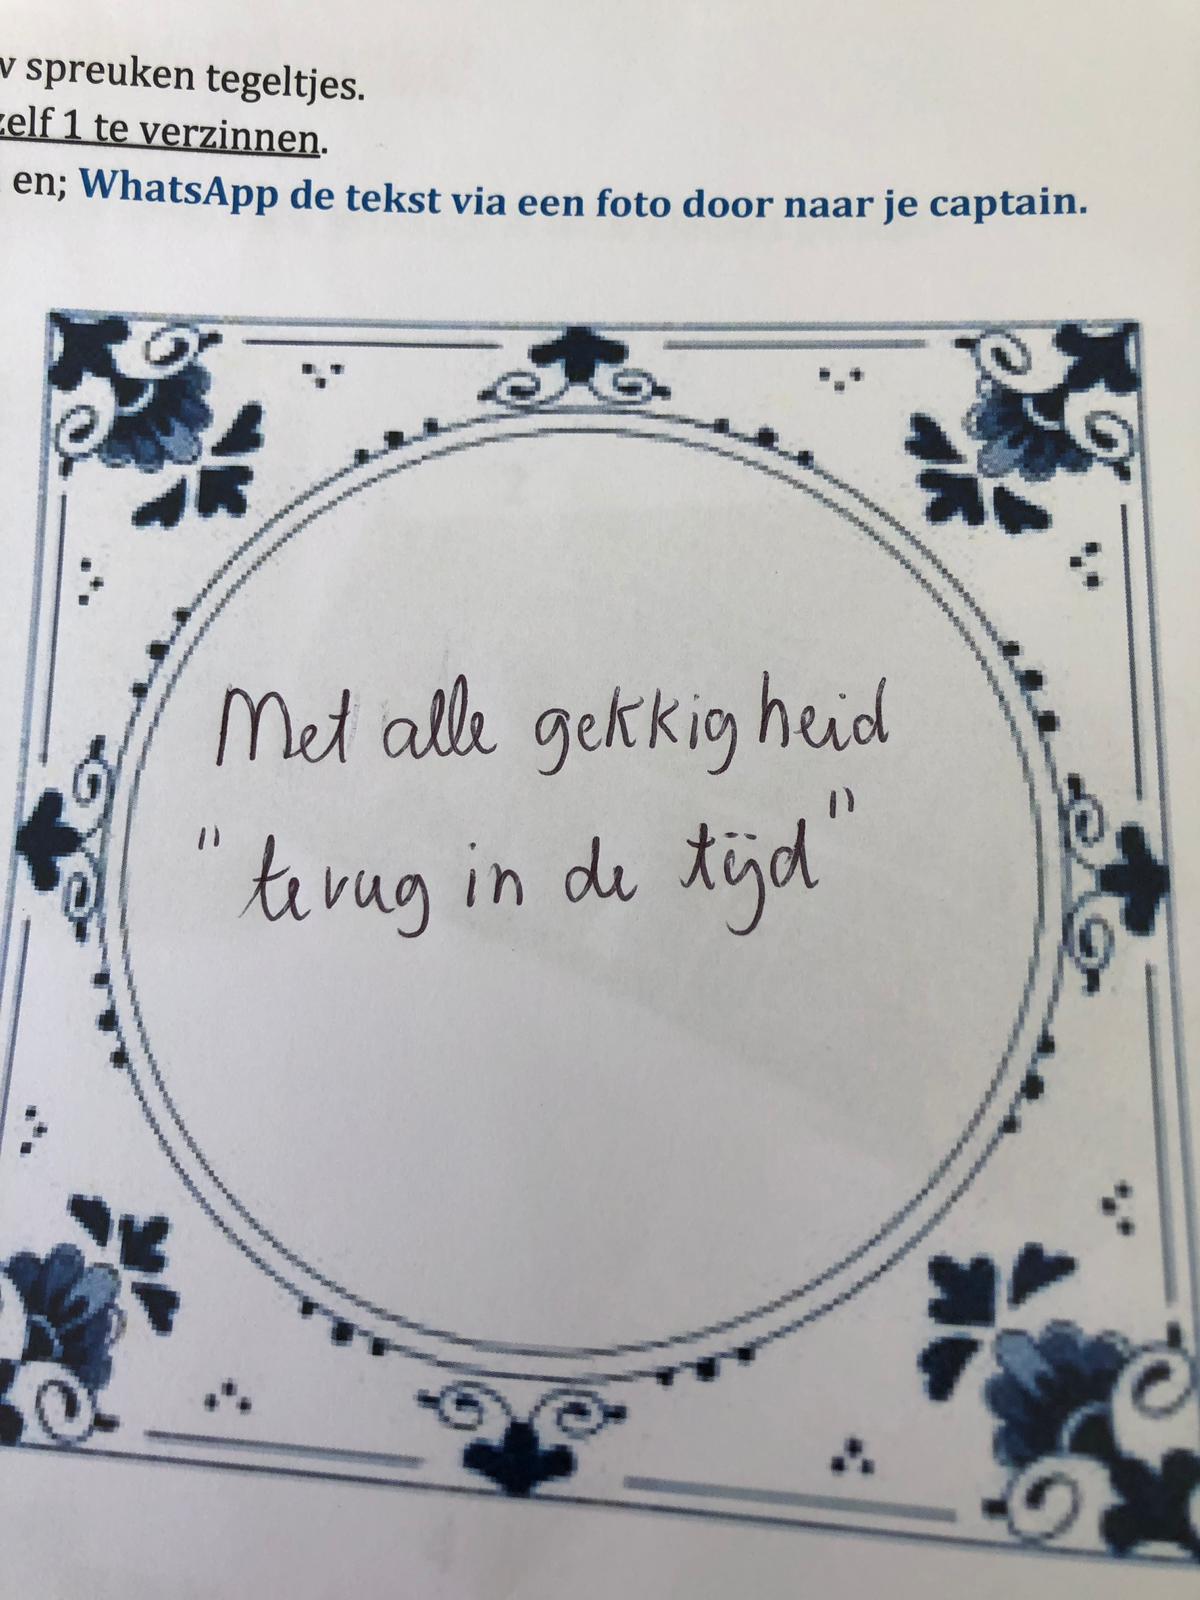 spreuken tegeltjes.
zelf 1 te verzinnen.
en; WhatsApp de tekst via een foto door naar je captain.
Met alle gekkigheid
"terug in de tijd"